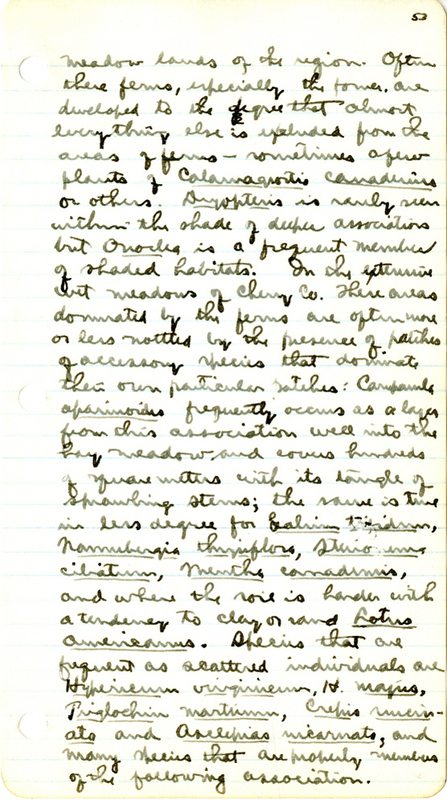 53
meadow lands of the region. Often
these ferns, especially the former, are
developed to the degree that almost
everything else is excluded from the
areas of ferns — sometimes a few
plants of Calamagrostis canadensis
or others. Dryopteris is rarely seen
within the shade of deeper associations
but Onoclea is a frequent member
of shaded habitats. In the extensive
wet meadows of Cherry Co. these areas
dominated by the ferns are often more
or less mottled by the presence of patches
of accessory species that dominate
their own particular patches: Campanula
aparinoides frequently occurs as a layer
from this association well into the
hay meadow, and covers hundreds
of square meters with its tangle of
sprawling stems; the same is true
in less degree for Galium
Naumbergia thyrsiflora, Steironema
ciliatum, Mentha canadensis,
and where the soil is harder with
a tendency to clay or sand Lotus
americanus. Species that are
frequent as scattered individuals are
Hypericum virginicum, H. majus,
Triglochin maritima, Crepis runcin-
ata and Asclepias incarnata, and
many species that are properly members
of the following association.